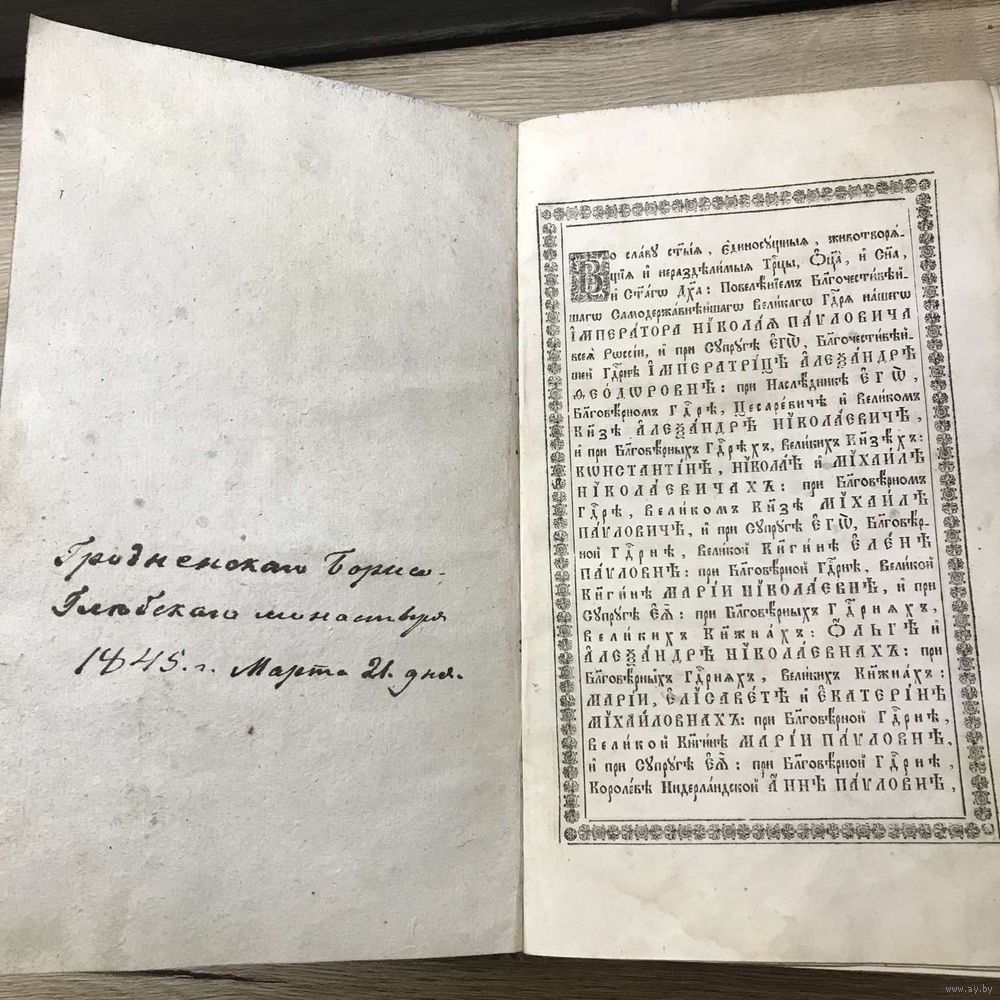 Гродненскаго Борисо-
Глѣбскаго монастыря
1845. г. Марта 21. дня.
Во сла́ву ст҃ы́ѧ, є҆диносꙋ́щныѧ, животворѧ́-
щїѧ и҆ нераздѣли́мыѧ Трⷪ҇цы, Ѻ҆ц҃а̀, и҆ Сн҃а,
и҆ Ст҃а́гѡ Дх҃а: Повелѣ́нїемъ Бл҃гочести́вѣй-
шагѡ Самодержа́внѣйшагѡ Вели́кагѡ Гдⷭ҇рѧ на́шегѡ
І҆МПЕРА́ТОРА НІКОЛА́Ѧ ПА́ѴЛОВИЧА
всеѧ̀ Рѡссі́и, и҆ при Сꙋпрꙋ́гѣ Є҆ГѠ̀, Бл҃гочести́вѣй-
шей Гдⷭ҇рнѣ І҆МПЕРАТРІ́ЦѢ А҆ЛЕѮА́НДРѢ
Ѳ҆ЕО́ДѠРОВНѢ: при Наслѣ́дникѣ Є҆ГѠ̀,
Бл҃говѣ́рномъ Гдⷭ҇рѣ, Цесаре́вичѣ и҆ Вели́комъ
Кнѧ́зѣ А҆ЛЕѮА́НДРѢ НІКОЛА́ЕВИЧѢ,
и҆ при Бл҃говѣ́рныхъ Гдⷭ҇рѣхъ, Вели́кихъ Кнѧ́зѣхъ:
КѠНСТАНТІ́НѢ, НІКОЛА́Ѣ и҆ МІХАИ́ЛѢ
НІКОЛА́ЕВИЧАХЪ: при Бл҃говѣ́рномъ
Гдⷭ҇рѣ, Вели́комъ Кнѧ́зѣ МІХАИ́ЛѢ
ПА́ѴЛОВИЧѢ, и҆ при Сꙋпрꙋ́гѣ Є҆ГѠ̀, Бл҃говѣ́р-
ной Гдⷭ҇рнѣ, Вели́кой Кнѧги́нѣ Є҆ЛЕ́НѢ
ПА́ѴЛОВНѢ: при Бл҃говѣ́рной Гдⷭ҇рнѣ, Вели́кой
Кнѧги́нѣ МАРІ́И НІКОЛА́ЕВНѢ, и҆ при
Сꙋпрꙋ́гѣ Є҆Ѧ̀: при Бл҃говѣ́рныхъ Гдⷭ҇рнѧхъ,
Вели́кихъ Кнѧжна́хъ: Ѻ҆́ЛЬГѢ и҆
А҆ЛЕѮА́НДРѢ НІКОЛА́ЕВНАХЪ: при
Бл҃говѣ́рныхъ Гдⷭ҇рнѧхъ, Вели́кихъ Кнѧжна́хъ:
МАРІ́И, Є҆ЛІСАВЕ́ТѢ и҆ Є҆КАТЕРІ́НѢ
МІХАИ́ЛОВНАХЪ: при Бл҃говѣ́рной Гдⷭ҇рнѣ,
Вели́кой Кнѧги́нѣ МАРІ́И ПА́ѴЛОВНѢ,
и҆ при Сꙋпрꙋ́гѣ Є҆Ѧ̀: при Бл҃говѣ́рной Гдⷭ҇рнѣ,
Короле́вѣ Нидерла́ндской А҆́ННѢ ПА́ѴЛОВНѢ,
www.ay.by